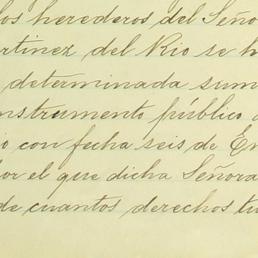 los herederos del Seño
rtinez del Rio se h
determinada sum
nstrumento público
io con fecha seis de En
por el que dicha Señora
de cuantos derechos tu